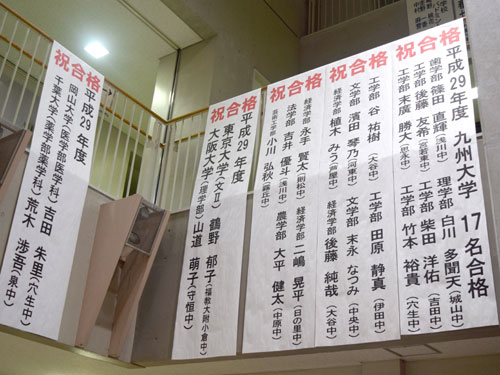 祝合格
平成29年度 九州大学 17名合格
歯学部 篠田 直輝(浅川中) 理学部 白川 多聞天(城山中)
工学部 後藤 友希(宮若東中) 工学部 柴田 洋佑(吉田中)
工学部 末廣 勝大(思永中) 工学部 竹本 裕貴(穴生中)
祝合格
工学部 谷 祐樹(大谷中) 工学部 田原 静真(伊田中)
文学部 濱田 琴乃(河東中) 文学部 末永 なつみ(中央中)
経済学部 植木 みう(芦屋中) 経済学部 後藤 純哉(大谷中)
祝合格
経済学部 永手 賢太(則松中) 経済学部 二嶋 晃平(日の里中)
法学部 吉井 優斗(浅川中) 農学部 大平 健太(中原中)
芸術工学部 小川 弘秋(霧丘中)
祝合格
平成29年度
東京大学(文Ⅱ) 鶴野 郁子(福教大附小倉中)
大阪大学(理学部) 山道 萌子(守恒中)
祝合格
平成29年度
岡山大学(医学部医学科) 吉田 朱里(穴生中)
千葉大学(薬学部薬学科) 荒木 渉吾(泉中)